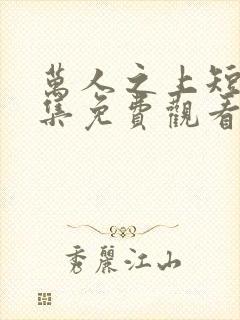 萬人之上短
集免費觀看
秀麗江山